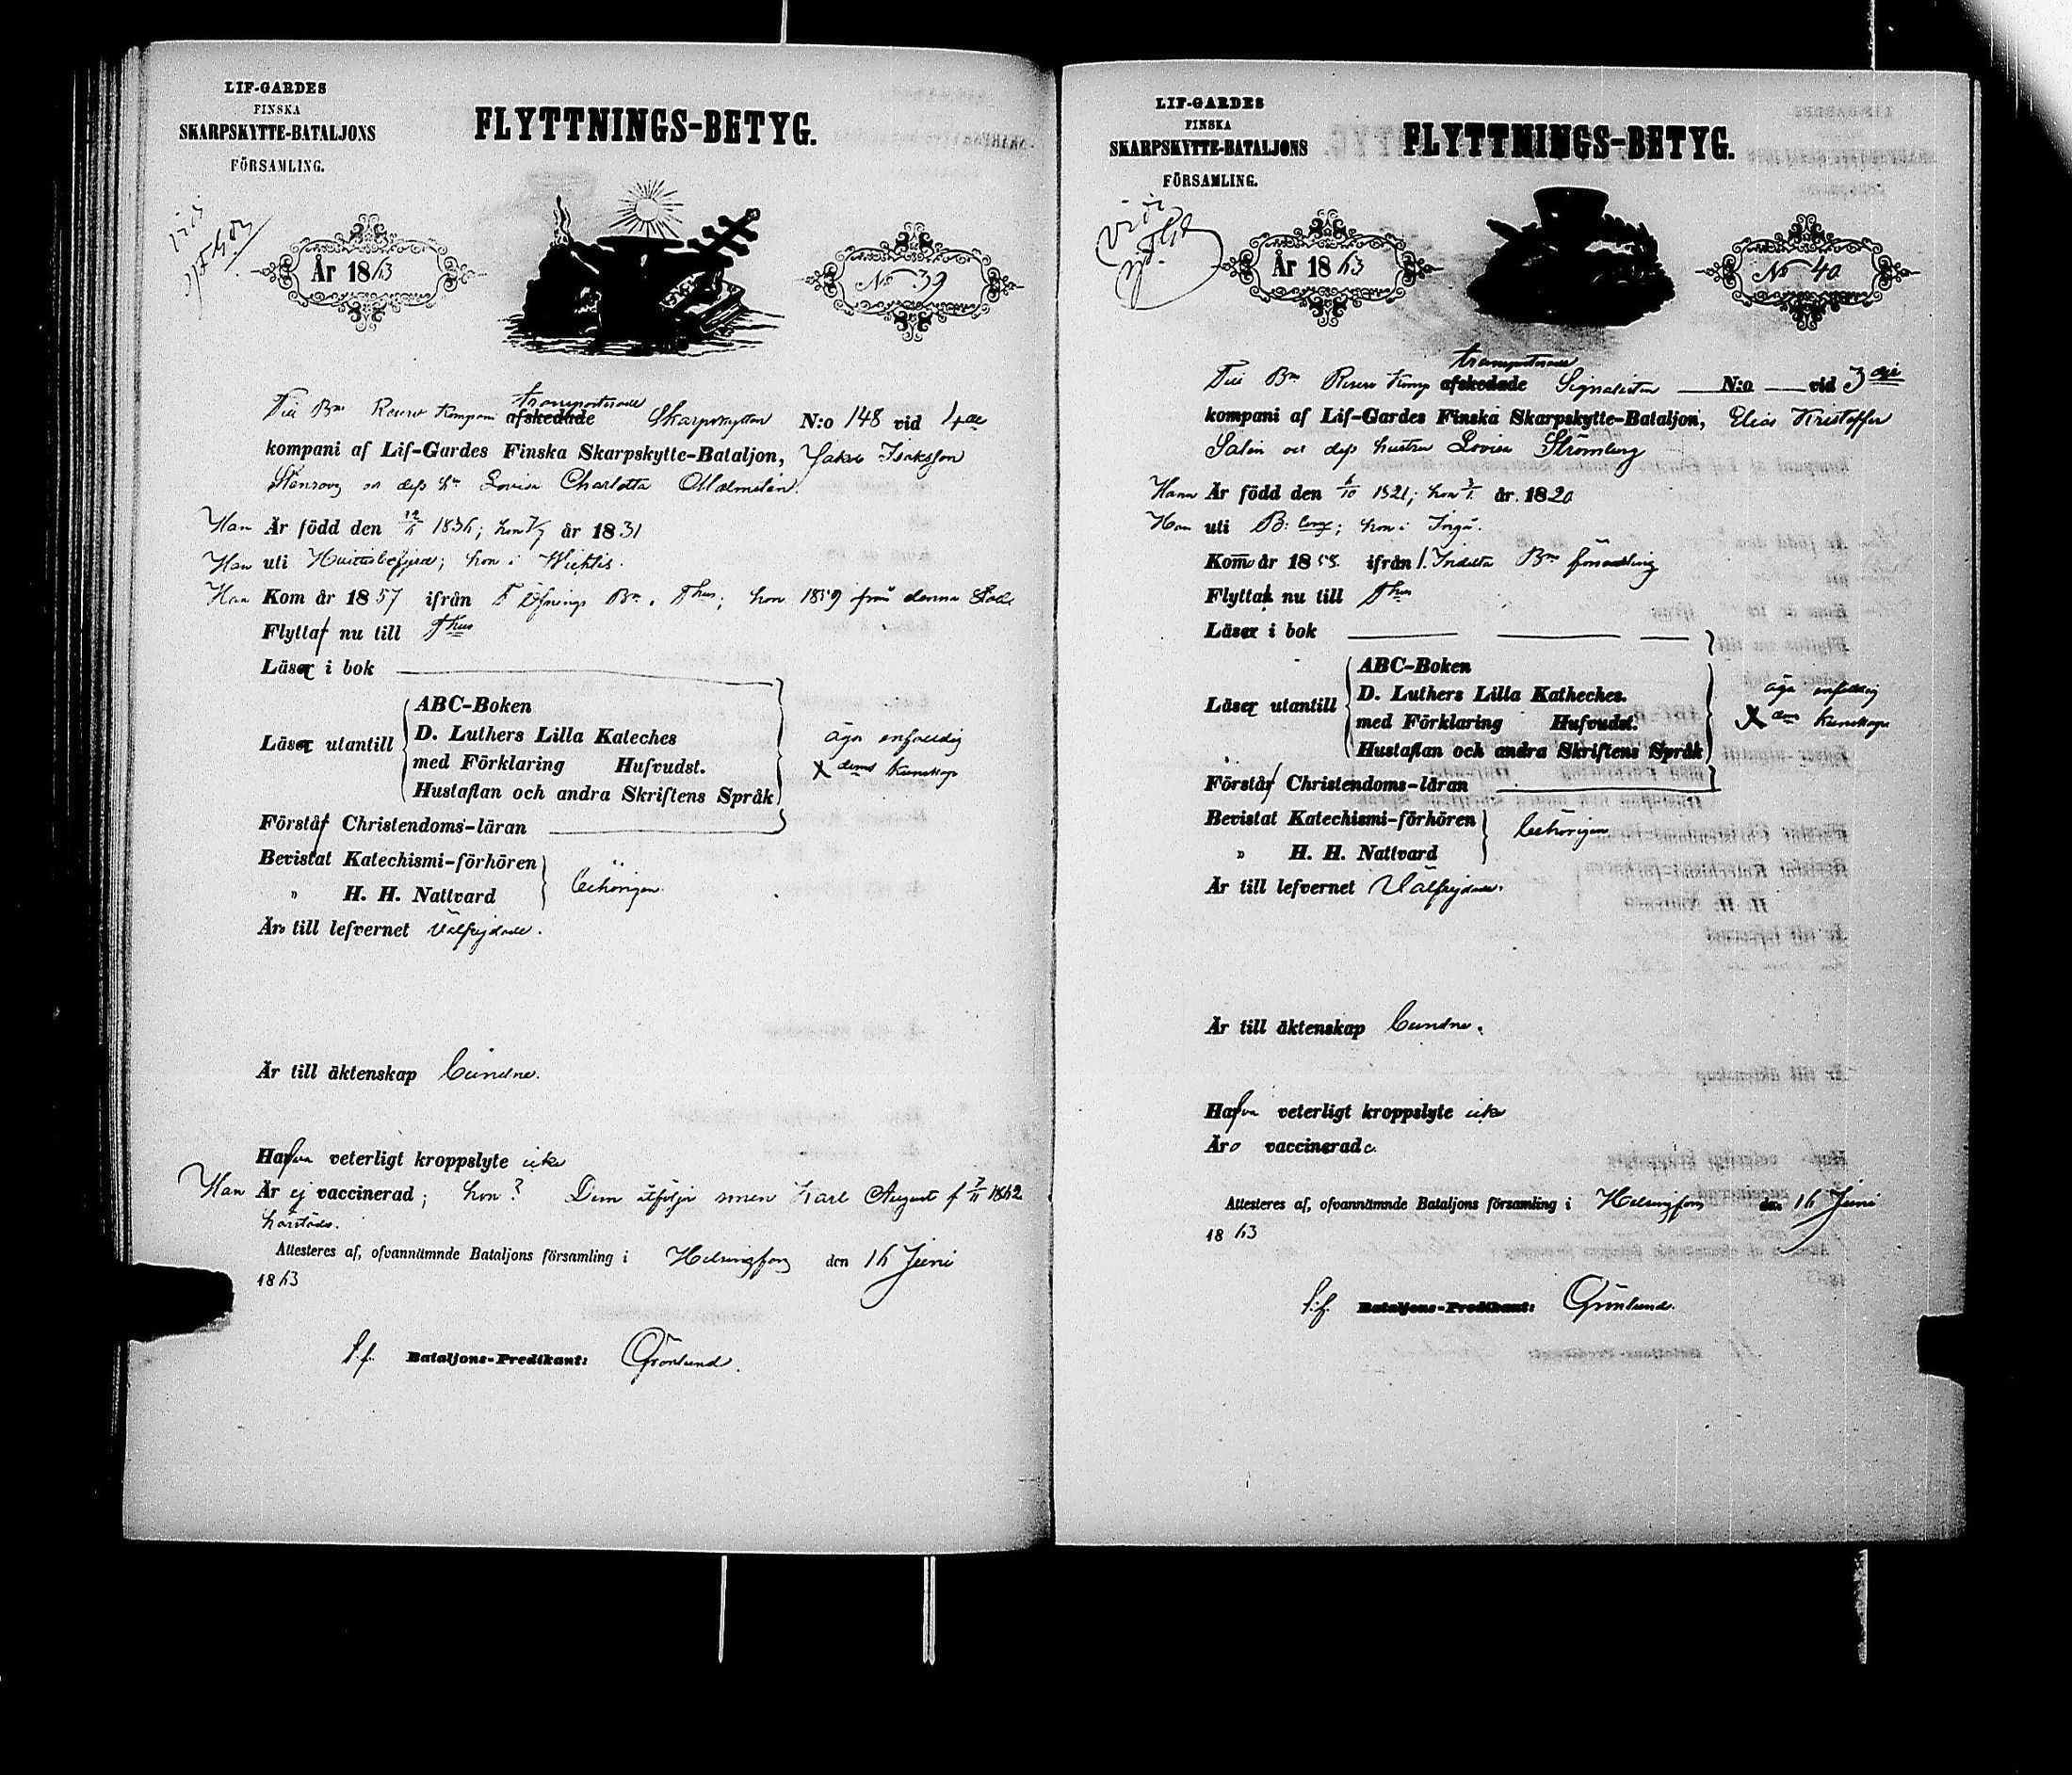 LIF-GARDES
FINSKA
SKARPSKYTTE-BATALJONS
FÖRSAMLING.
FLYTTNINGS-BETYG.
År 1863
No 39
Till Bns Reserv Kompani transporterade afskedade Skarpskytten N:o 148 vid 4de
kompani af Lif-Gardes Finska Skarpskytte-Bataljon, Jakob Isaksson
Stenroos och dess hu Lovisa Charlotta Malmelin.
Han Är född den 1836; hon år 1831
Han uti Huittisbofjerd; hon i Wichtis.
Han Kom år 1857 ifrån Öfnings Bn i Thus; hon 1859 från denna Stad
Flytta nu till Thus
Läsa i bok
Läsa utantill
ABC-Boken
D. Luthers Lilla Kateches
med Förklaring Hufvudst.
Hustaflan och andra Skriftens Språk
äga enfaldig
X doms kunskap
Förstå Christendoms-läran
Bevistat Katechismi-förhören
" H. H. Nattvard
behörigen.
Äro till lefvernet Välfrejdade.
Är till äktenskap bundne.
Hafva veterligt kroppslyte icke
Han Är ej vaccinerad; hon? Dem åtföljer sonen Karl August f 7/11 1862
härstädes.
Attesteres af, ofvannämnde Bataljons församling i Helsingfors den 16 Juni
1863
t.f. Bataljons-Predikant: Grönlund.
LIF-GARDES
FINSKA
SKARPSKYTTE-BATALJONS
FÖRSAMLING.
FLYTTNINGS-BETYG.
vidi
År 1863
No 40
Till Bns Reserv Komp transporterade afskedade Signalisten N:o vid 3dje
kompani af Lif-Gardes Finska Skarpskytte-Bataljon, Elias Kristoffer
Salin och dess hustru Lovisa Strömberg
Hann Är född den 6/10 1821; hon år 1820
Han uti ; hon i Ingå.
Kom år 1858 ifrån 1. Indelta Bns församling
Flytta nu till Thus
Läsa i bok
Läsa utantill
ABC-Boken
D. Luthers Lilla Katheches.
med Förklaring Hufvudst.
Hustaflan och andra Skriftens Språk
äga enfaldig
X doms kunskap
Förstå Christendoms-läran
Bevistat Katechismi-förhören
" H. H. Nattvard
behörigen
Är till lefvernet Välfrejdade.
Är till äktenskap bundne.
Hafva veterligt kroppslyte icke
Äro vaccinerade.
Attesteres af, ofvannämnde Bataljons församling i Helsingfors den 16 Juni
1863
t.f. Bataljons-Predikant: Grönlund.